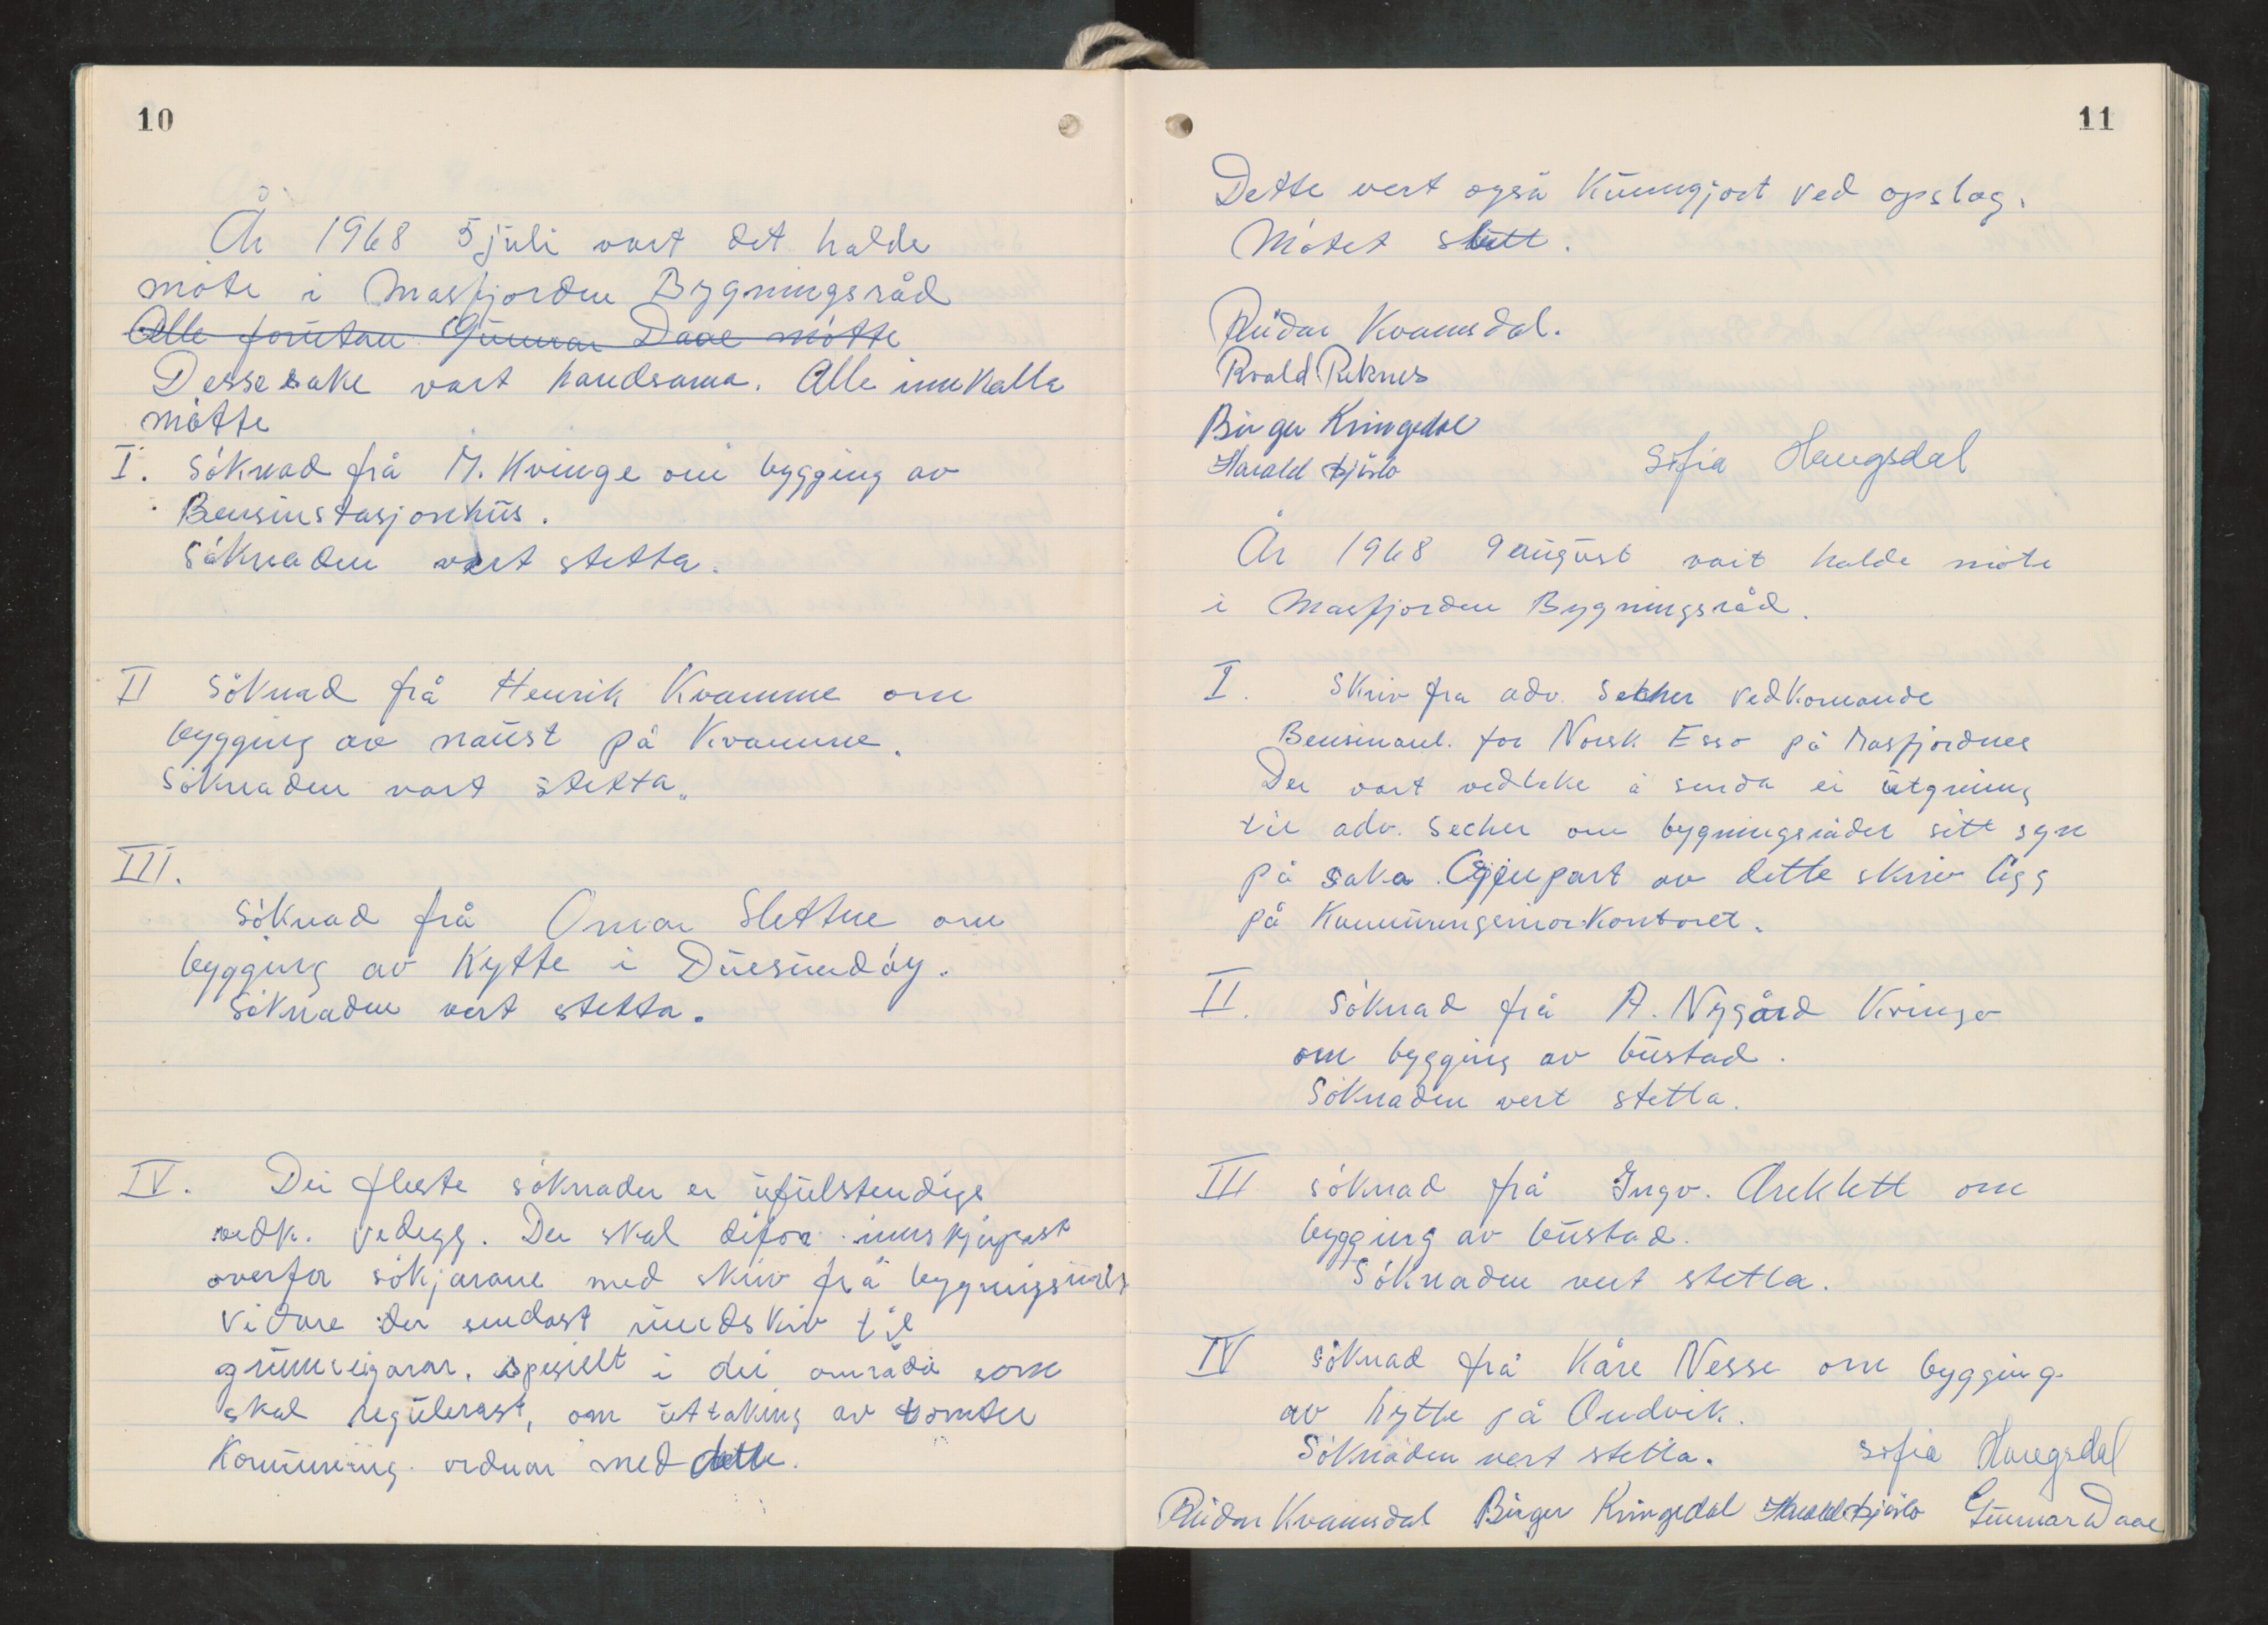 10
År 1968 5 juli vart det halde
møte i Masfjorden Bygningsråd
Alle foruten Gunnar Daae møtte
Desse sake vart handsama. Alle innkalla
møtte
I. Søknad frå M. Kvinge om bygging av
Bensinstasjonhus.
Søknaden vert stetta.
II Søknad frå Henrik Kvamme om
bygging av naust på Kvamme.
Søknaden vart stetta.
III.
Søknad frå Omar Slettne om
bygging av hytte i Duesundøy.
Søknaden vert stetta.
IV. Dei fleste søknader er ufulstendige
vedk. vedegg. Der skal difor innskjerpast
overfor søkjarane med skriv frå
Vidare der sendast rundskriv til
grunneigarar, spesielt i dei områda som
skal regulerast, om uttaking av tomter
Kommuneing. ordnar med dette.
11
Dette vert også kunngjort ved opslag.
Møtet slutt.
Reidar Kvamsdal.
Roald Reknes
Birger Kringedal
Harald
Sofia Haugsdal
År 1968 9 august vart halde møte
i Masfjorden Bygningsråd.
I. Skriv fra adv. Secher vedkomande
Bensinanl. for Norsk Esso på Masfjordnes
Der vart vedteke å senda ei utgreiing
til adv. Secher om bygningsrådet sitt syn
på saka. Gjenpart av dette skriv ligg
på Kommuneingeniørkontoret.
II. Søknad frå A. Nygård Kvinge
om bygging av bustad.
Søknaden vert stetta.
III søknad frå Ingv. Areklett om
bygging av bustad.
Søknaden vert stetta.
IV søknad frå Kåre Nesse om bygging
av hytte på Andvik.
Søknaden vert stetta. Sofia Haugsdal
Reidar Kvamsdal Birger Kringedal Harald Gunnar Daae